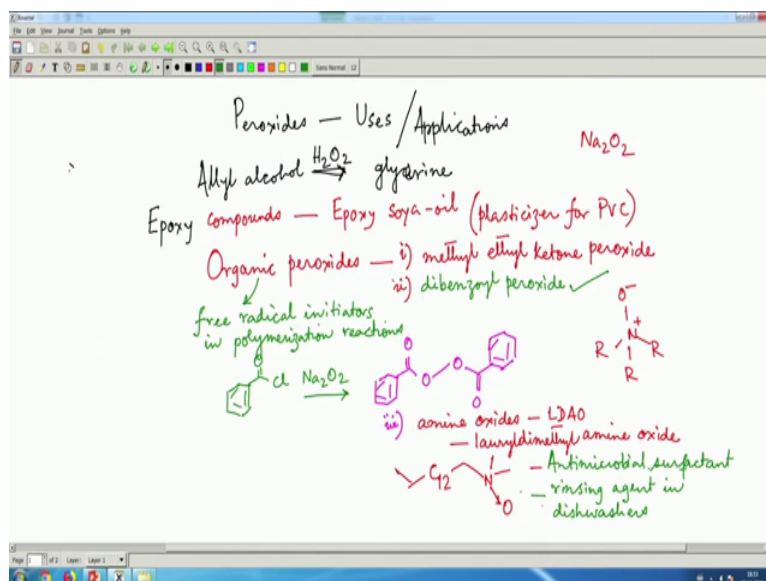 Journal
File Edit View Journal Tools Options Help
Sans Normal 12
Peroxides — Uses / Applications
Na2O2
Allyl alcohol H2O2 → glycerine
Epoxy compounds — Epoxy soya-oil (plasticizer for PVC)
Organic peroxides — i) methyl ethyl ketone peroxide
ii) dibenzoyl peroxide ✓
free radical initiators
in polymerization reactions
O-
N+
R R
R
O
Cl Na2O2 →
O
O O
O
iii) amine oxides — LDAO
— lauryldimethyl amine oxide
C12 N
O
— Antimicrobial surfactant
— rinsing agent in
dishwashers
Page 1 of 2 Layer: Layer 1